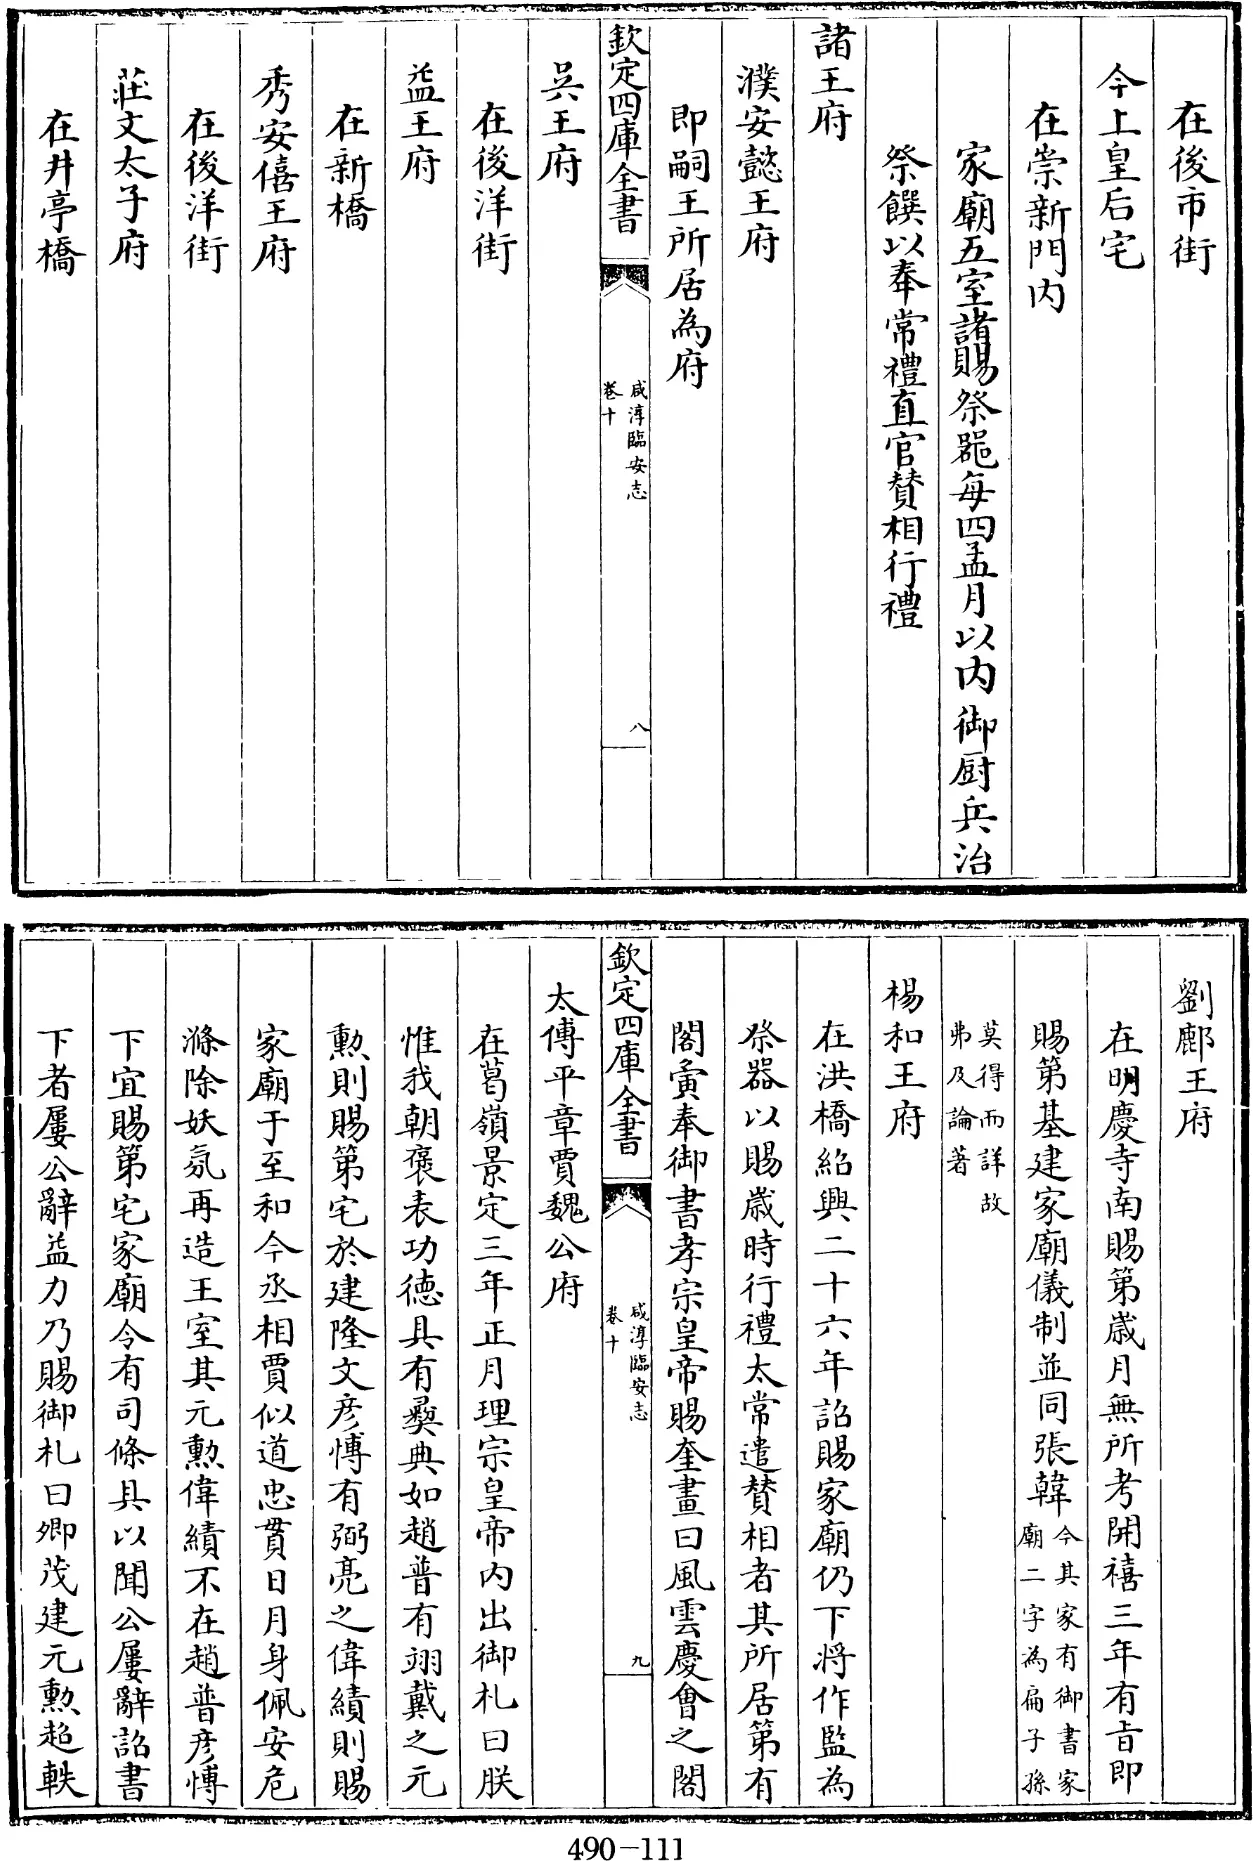 在後市街
今上皇后宅
在崇新門内
家廟五室諸賜祭器每四孟月以内御厨兵治
祭饌以奉常禮直官賛相行禮
諸王府
濮安懿王府
即嗣王所居為府
欽定四庫全書
咸淳臨安志
卷十
八
吳王府
在後洋街
益王府
在新橋
秀安僖王府
在後洋街
莊文太子府
在井亭橋
劉鄜王府
在明慶寺南賜第歲月無所考開禧三年有旨即
賜第基建家廟儀制並同張韓今其家有御書家
廟二字為扁子孫
莫得而詳故
弗及論著
楊和王府
在洪橋紹興二十六年詔賜家廟仍下將作監為
祭器以賜歲時行禮太常遣賛相者其所居第有
閣寅奉御書孝宗皇帝賜奎畫曰風雲慶會之閣
欽定四庫全書
咸淳臨安志
卷十
九
太傅平章賈魏公府
在葛嶺景定三年正月理宗皇帝内出御札曰朕
惟我朝褒表功德具有彝典如趙普有翊戴之元
勲則賜第宅於建隆文彦博有弼亮之偉績則賜
家廟于至和今丞相賈似道忠貫日月身佩安危
滌除妖氛再造王室其元勲偉績不在趙普彦博
下宜賜第宅家廟令有司條具以聞公屢辭詔書
下者屢公辭益力乃賜御札曰卿茂建元勲超軼
490-111